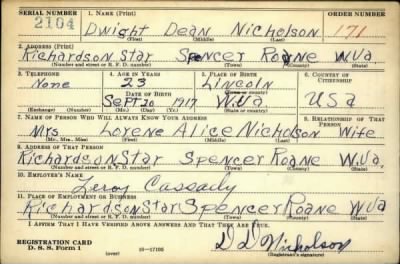 SERIAL NUMBER 1. NAME (Print) ORDER NUMBER
2104 Dwight Dean Nicholson 171
(First) (Middle) (Last)
2. ADDRESS (Print)
Richardson Star Spencer Roane W.Va
(Number and street or R. F. D. number) (Town) (County) (State)
3. TELEPHONE 4. AGE IN YEARS 5. PLACE OF BIRTH 6. COUNTRY OF CITIZENSHIP
None 23 Lincoln
DATE OF BIRTH (Town or county)
Sept 20 1917 W.Va USA
(Exchange) (Number) (Mo.) (Day) (Yr.) (State or country)
7. NAME OF PERSON WHO WILL ALWAYS KNOW YOUR ADDRESS 8. RELATIONSHIP OF THAT PERSON
Mrs Lorene Alice Nicholson Wife
(Mr., Mrs., Miss) (First) (Middle) (Last)
9. ADDRESS OF THAT PERSON
Richardson Star Spencer Roane W.Va
(Number and street or R. F. D. number) (Town) (County) (State)
10. EMPLOYER'S NAME
Leroy Cassady
11. PLACE OF EMPLOYMENT OR BUSINESS
Richardson Star Spencer Roane W.Va
(Number and street or R. F. D. number) (Town) (County) (State)
I AFFIRM THAT I HAVE VERIFIED ABOVE ANSWERS AND THAT THEY ARE TRUE.
REGISTRATION CARD D D Nicholson
D. S. S. Form 1 (over) 16—17105 (Registrant's signature)